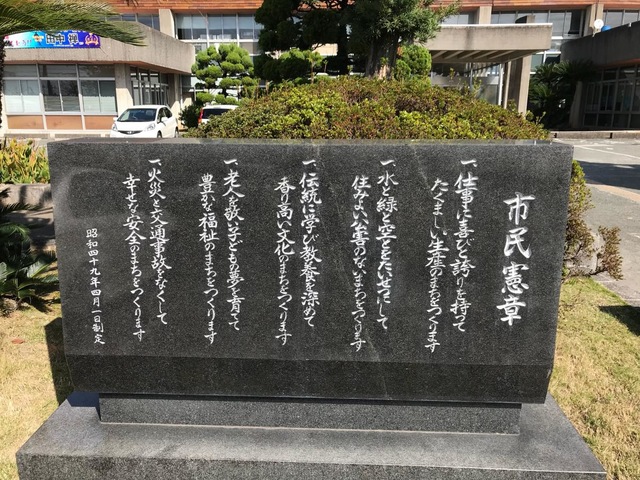 市民憲章
一、仕事に喜びと誇りを持って
たくましい生産のまちをつくります
一、水と緑と空とをたいせつにして
住みよい公害のないまちをつくります
一、伝統に学び教養を深めて
香り高い文化のまちをつくります
一、老人を敬い子どもの夢を育てて
豊かな福祉のまちをつくります
一、火災と交通事故をなくして
幸せな安全のまちをつくります
昭和四十九年四月一日制定